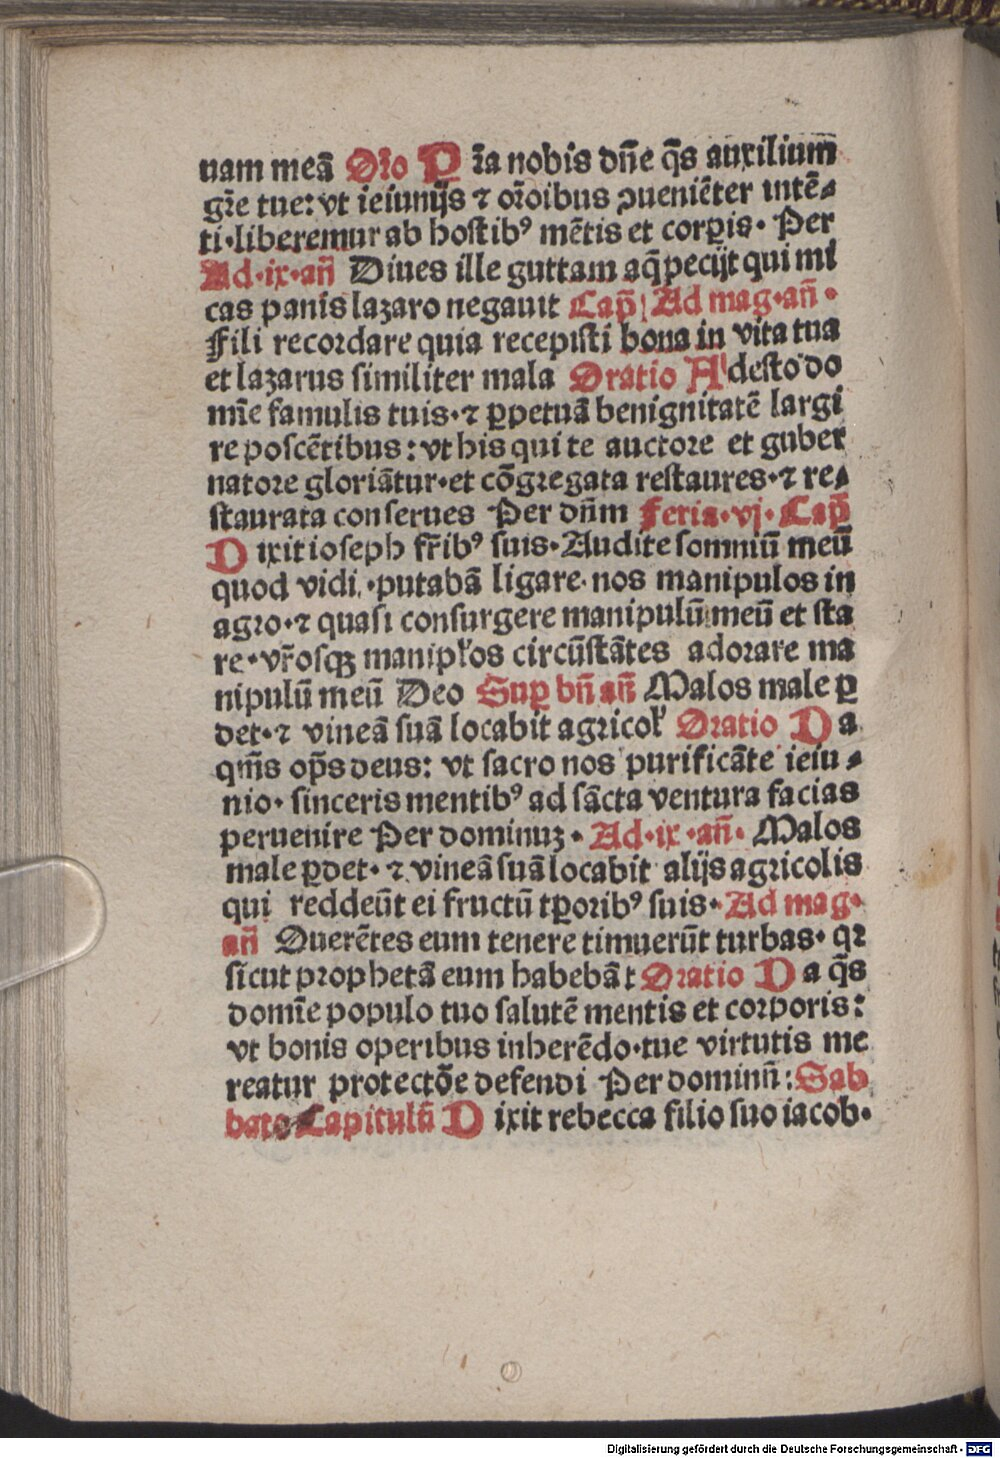 nam meā Or̄o P r̄a nobis dn̄e q̄s auxilium
gr̄e tue: vt ieiunijs ⁊ or̄oibus ꝯueniēter intē⸗
ti·liberemur ab hostibꝰ mētis et corꝑis· Per
Ad·ix·an̄ Diues ille guttam aq̄ pecijt qui mi
cas panis lazaro negauit Cap̄ Ad mag·an̄·
Fili recordare quia recepisti bona in vita tua
et lazarus similiter mala Oratio A desto do
mīe famulis tuis·⁊ ꝑpetuā benignitatē largi
re poscētibus: vt his qui te auctore et guber
natore gloriātur·et cōgregata restaures·⁊ re⸗
staurata conserues Per dn̄m Feria·vj·Cap̄
D ixit ioseph fr̄ibꝰ suis·Audite somniū meū
quod vidi·putabā ligare nos manipulos in
agro·⁊ quasi consurgere manipulū meū et sta
re·vr̄osqꝫ manipłos circūstātes adorare ma
nipulū meū Deo Suꝑ bn̄ an̄ Malos male ꝑ
det·⁊ vineā suā locabit agricoł Oratio D a
qm̄s op̄s deus: vt sacro nos purificāte ieiu⸗
nio·sinceris mentibꝰ ad sācta ventura facias
peruenire Per dominuꝫ· Ad·ix·an̄· Malos
male ꝑdet·⁊ vineā suā locabit alijs agricolis
qui reddeūt ei fructū tꝑoribꝰ suis·Ad mag·
an̄ Querētes eum tenere timuerūt turbas·qꝛ
sicut prophetā eum habebāt Oratio D a q̄s
domīe populo tuo salutē mentis et corporis:
vt bonis operibus inherēdo·tue virtutis me
reatur protectōe defendi Per dominū: Sab
bato Capitulū D ixit rebecca filio suo iacob·
Digitalisierung gefördert durch die Deutsche Forschungsgemeinschaft - DFG